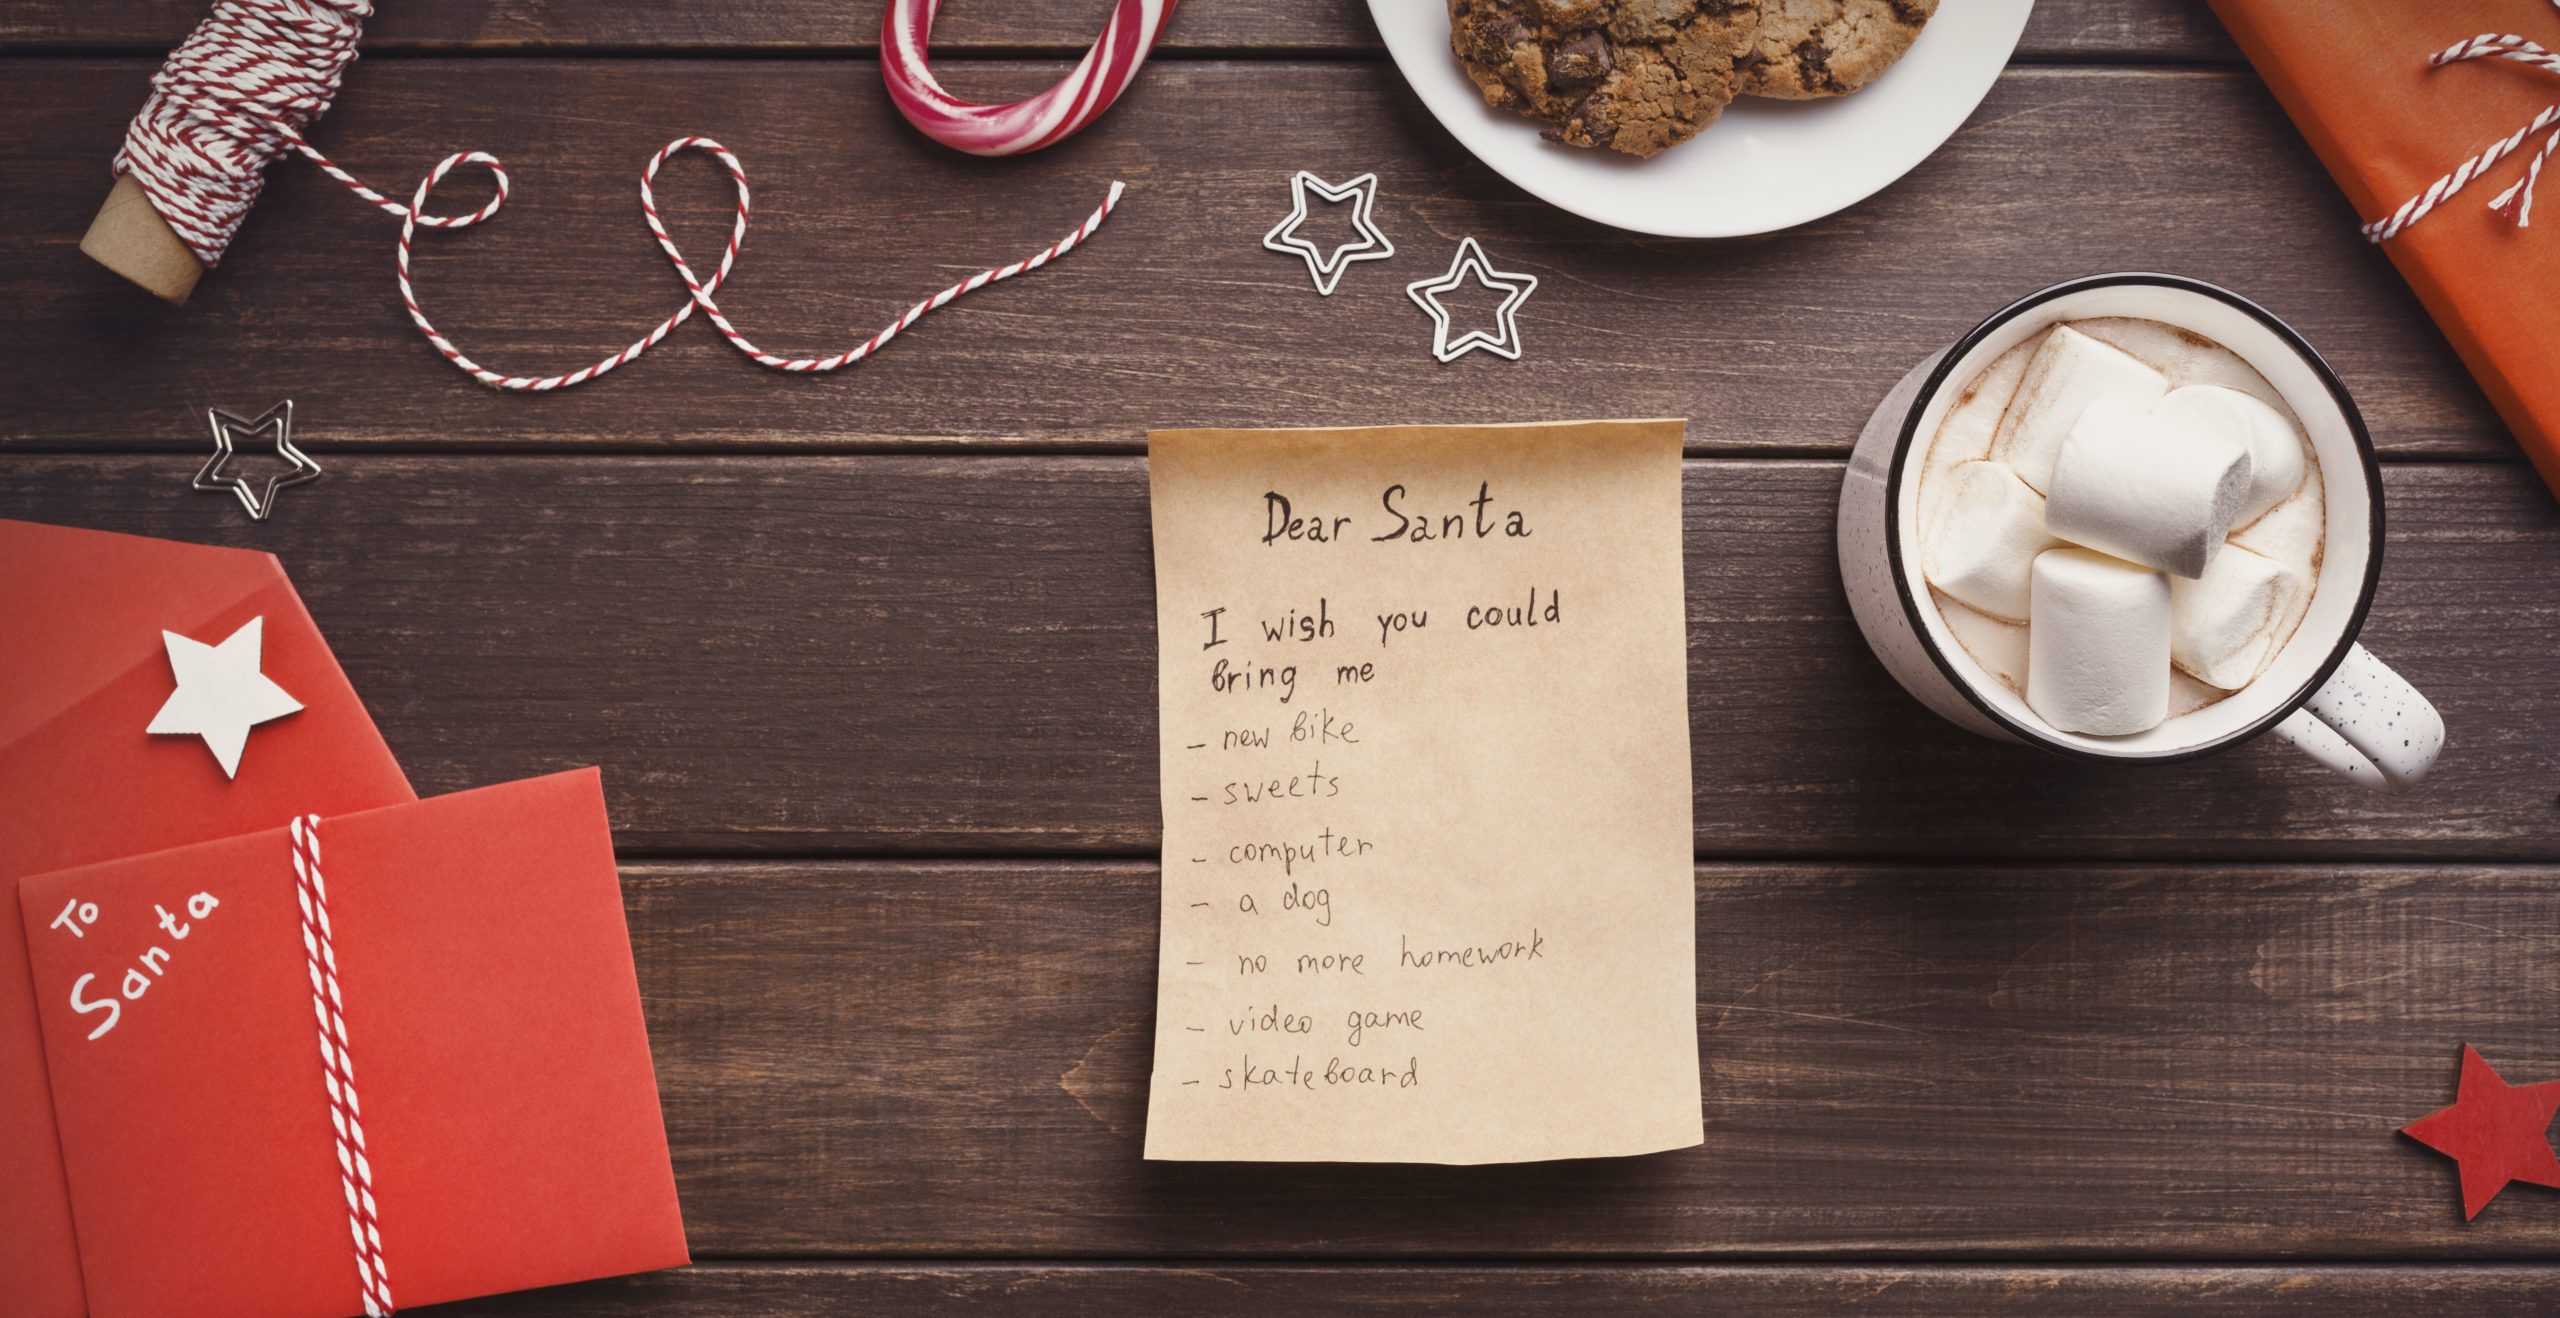 Dear Santa
I wish you could
bring me
- new bike
- sweets
- computer
- a dog
- no more homework
- video game
- skateboard
To
Santa